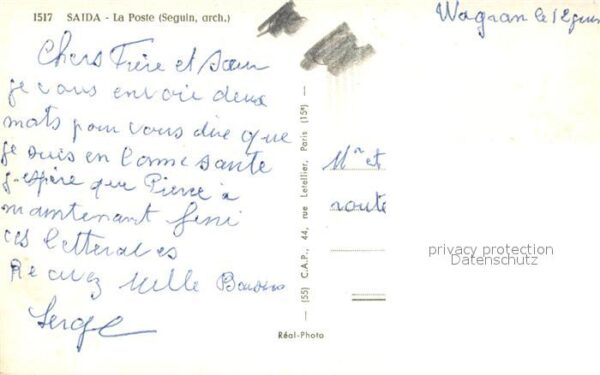 1517 SAIDA - La Poste (Seguin, arch.)
Chers Frère et Sœur
je vous envoie deux
mots pour vous dire que
je suis en bonne santé
j-espère que Pierre à
maintenant fini
ces
Recevez Mille Baisers
Serge
(55) C.A.P., 44, rue Letellier, Paris (15e)
Réal-Photo
Wagran le 1
Mr et
route
privacy protection
Datenschutz